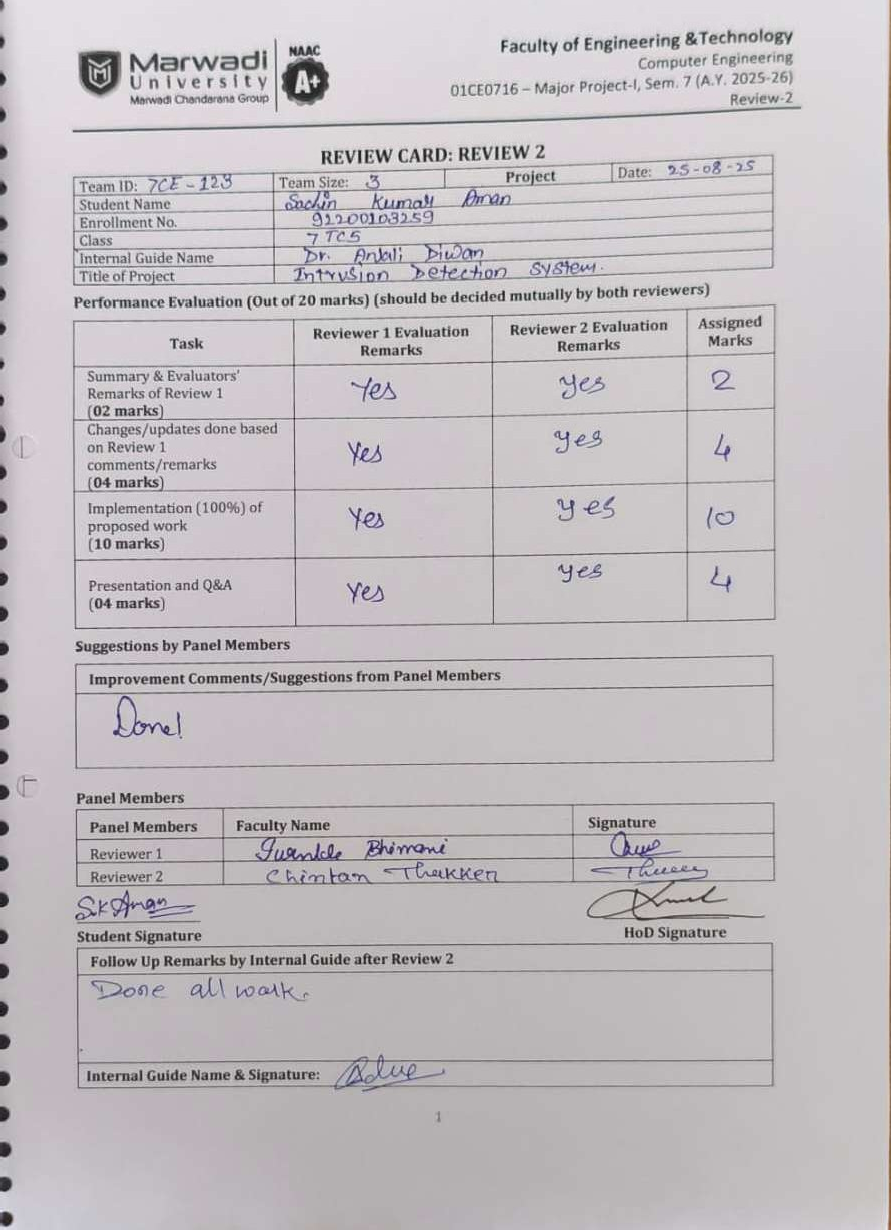 Marwadi
University
Marwadi Chandarana Group
NAAC
A+
Faculty of Engineering &Technology
Computer Engineering
01CE0716 – Major Project-I, Sem. 7 (A.Y. 2025-26)
Review-2
REVIEW CARD: REVIEW 2
Team ID: 7CE-123 Team Size: 3 Project Date: 25-08-25
Student Name Sachin Kumar Aman
Enrollment No. 92200103259
Class 7TC5
Internal Guide Name Dr. Anjali Diwan
Title of Project Intrusion Detection System.
Performance Evaluation (Out of 20 marks) (should be decided mutually by both reviewers)
Task Reviewer 1 Evaluation Remarks Reviewer 2 Evaluation Remarks Assigned Marks
Summary & Evaluators'
Remarks of Review 1
(02 marks)
Yes Yes 2
Changes/updates done based
on Review 1
comments/remarks
(04 marks)
Yes Yes 4
Implementation (100%) of
proposed work
(10 marks)
Yes Yes 10
Presentation and Q&A
(04 marks)
Yes Yes 4
Suggestions by Panel Members
Improvement Comments/Suggestions from Panel Members
Done!
Panel Members
Panel Members Faculty Name Signature
Reviewer 1 Twinkle Bhimani
Reviewer 2 Chintan Thakker
S.K Aman
Student Signature HoD Signature
Follow Up Remarks by Internal Guide after Review 2
Done all work.
Internal Guide Name & Signature:
1